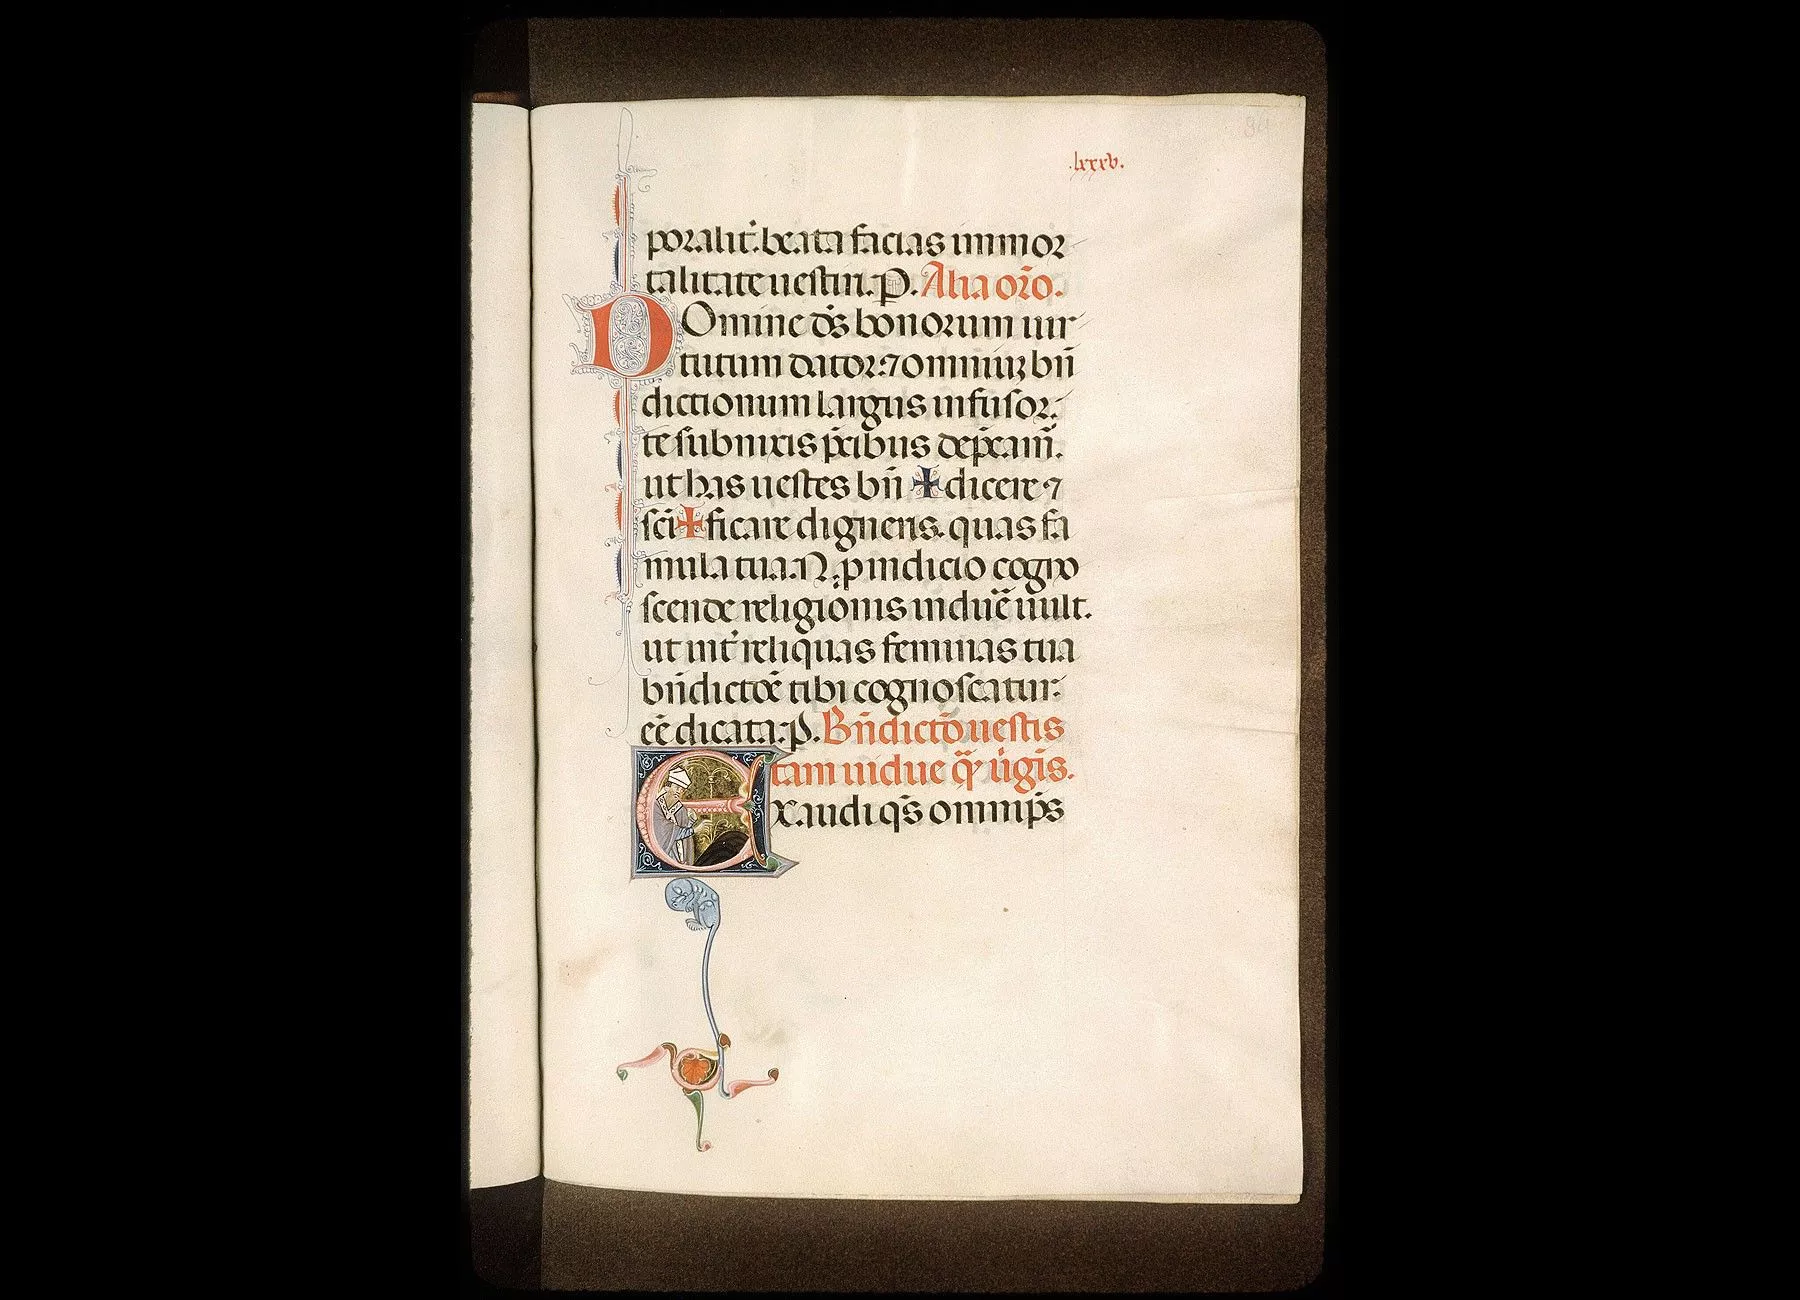 84
.lxxxv.
poralit̾. beata facias immor
talitate uestiri. P. Alia or̄o.
DOmine d̄s bonorum uir
tutum dator. ⁊ omniuꝫ bn̄
dictionum largus infusor.
te subnixis p̄cibus dep̄cam̄.
ut has uestes bn̄ ✠ dicere ⁊
sc̄i ✠ ficare digneris. quas fa
mula tua. N. ꝓ indicio cogno
scende religionis induc̄ uult.
ut int̾ reliquas feminas tua
bn̄dictōe tibi cognoscatur.
ēe dicata. P. Bn̄dictō uestis
tam uidue qͣꝫ ūgīs.
Exaudi qs̄ omnip̄s